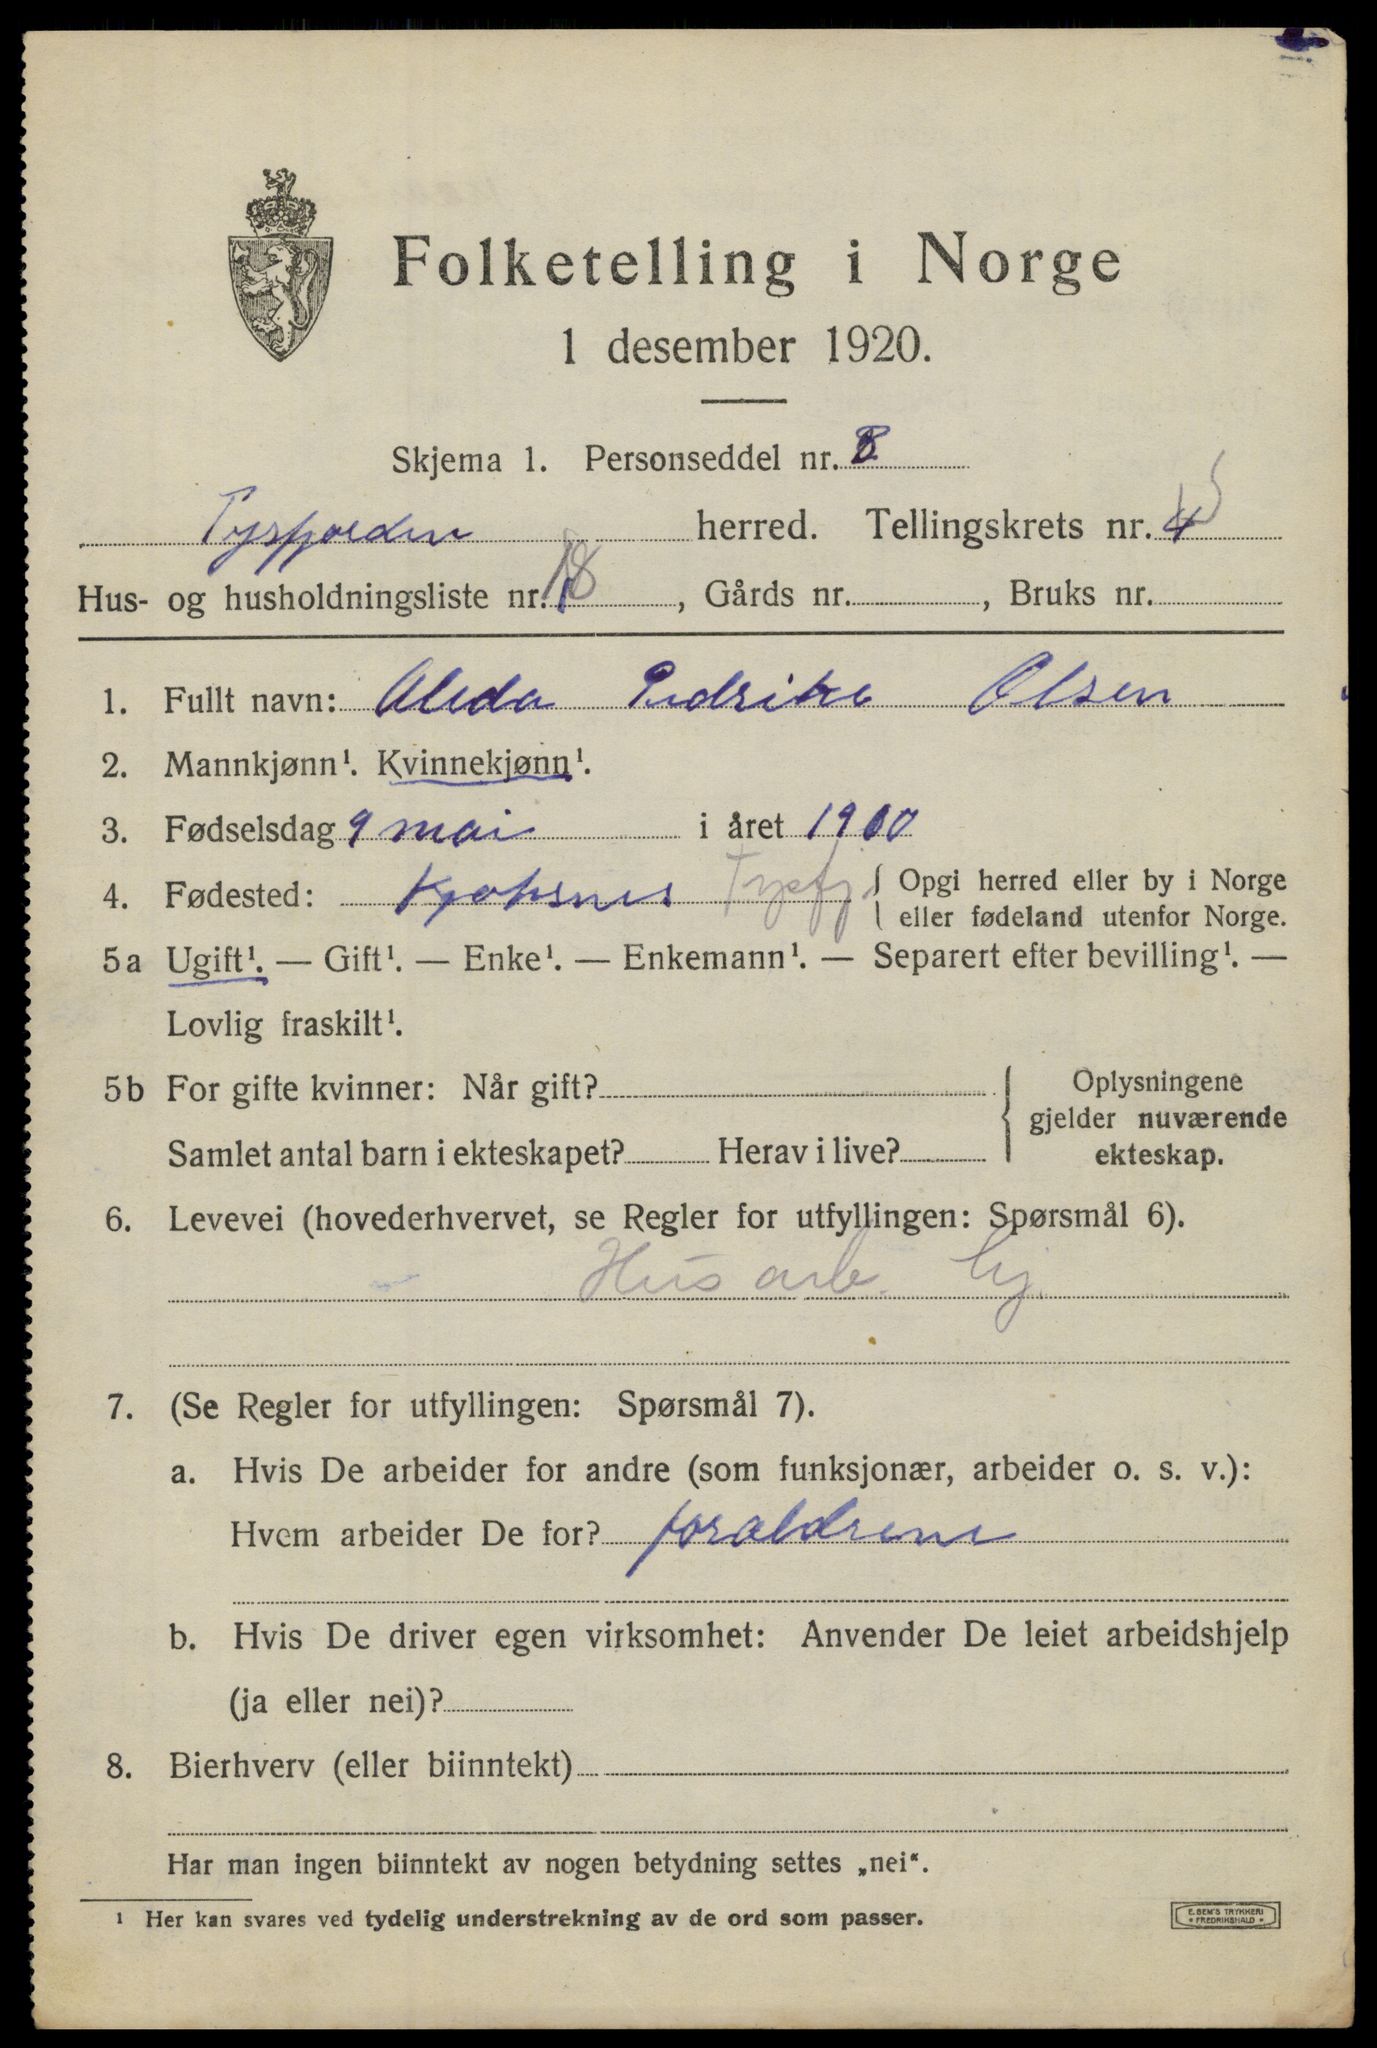 Folketelling i Norge
1 desember 1920.
Skjema 1. Personseddel nr.
Tysfjorden herred. Tellingskrets nr. 4 5
Hus- og husholdningsliste nr. 18, Gårds nr. , Bruks nr.
1. Fullt navn: Aleda Pedrike Olsen
2. Mannkjønn¹. Kvinnekjønn¹.
3. Fødselsdag 9 mai i året 1900
4. Fødested: Kjøpsnes Tysfj. { Opgi herred eller by i Norge
eller fødeland utenfor Norge.
5a Ugift¹. — Gift¹. — Enke¹. — Enkemann¹. — Separert efter bevilling¹. —
Lovlig fraskilt¹.
5b For gifte kvinner: Når gift? { Oplysningene
gjelder nuværende
Samlet antal barn i ekteskapet? Herav i live? ekteskap.
6. Levevei (hovederhvervet, se Regler for utfyllingen: Spørsmål 6).
Husarb. hj.
7. (Se Regler for utfyllingen: Spørsmål 7).
a. Hvis De arbeider for andre (som funksjonær, arbeider o. s. v.):
Hvem arbeider De for? foraldrene
b. Hvis De driver egen virksomhet: Anvender De leiet arbeidshjelp
(ja eller nei)?
8. Bierhverv (eller biinntekt)
Har man ingen biinntekt av nogen betydning settes „nei“.
¹ Her kan svares ved tydelig understrekning av de ord som passer.
E. SEM'S TRYKKERI
• FREDRIKSHALD •